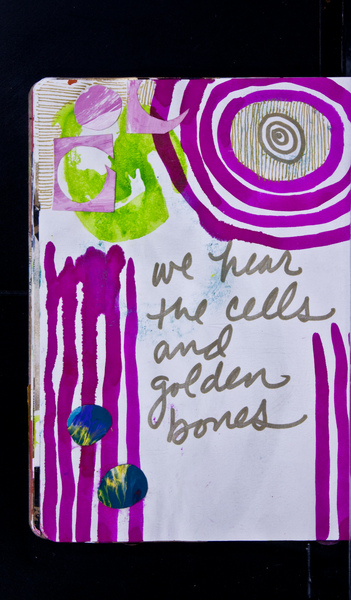 we hear
the cells
and
golden
bones